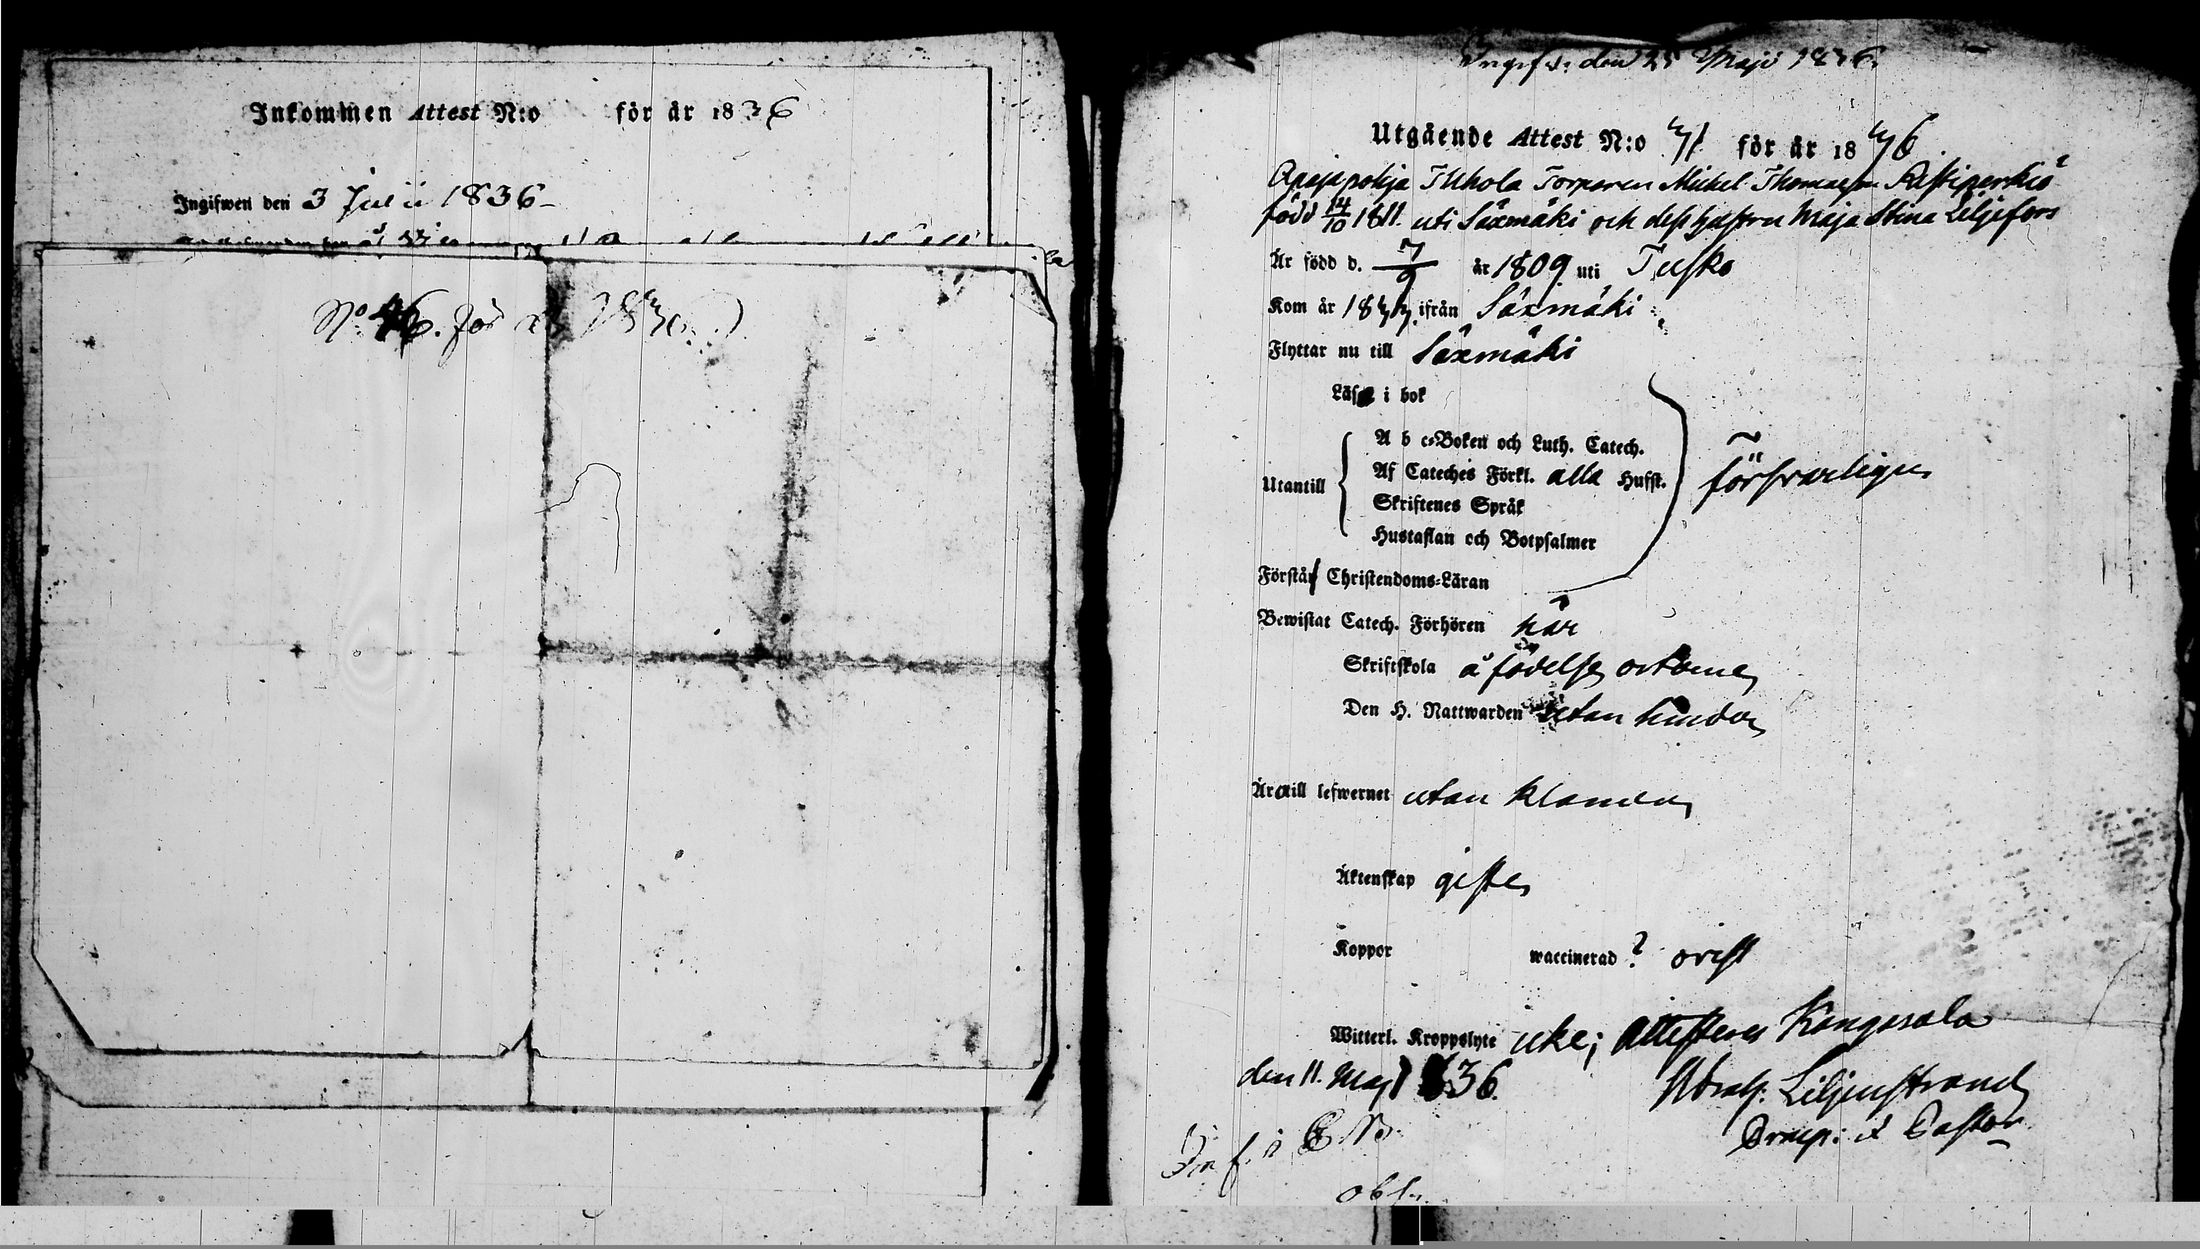 Inkommen Attest N:o för år 1836
Ingifwen den 3 Julii 1836
N:o 46. för
den 25 Maji 1836.
Utgående Attest N:o 71 för år 1836
Torparen Michel Thomasson
född 14/10 1811. uti Säxmäki och dess hustru Maja Stina Liljefors
Är född d. 7/9 år 1809 uti
Kom år 1833 ifrån Säxmäki
Flyttar nu till Säxmäki
Läsa i bok
A b c-Boken och Luth. Catech.
Af Cateches Förkl. alla Hufst.
Utantill
Skriftenes Språk
försvarligen
Hustaflan och Botpsalmer
Förstå Christendoms-Läran
Bewistat Catech. Förhören här
Skriftskola å födelse orterne
Den H. Nattwarden utan hinder
Äro till lefwernet utan klander
Äktenskap gifte
Koppor waccinerad? ovist
Witterl. Kroppslyte icke; attesterar Kangasala
den 11. Maji 1836.
Liljenstrand
Pastor